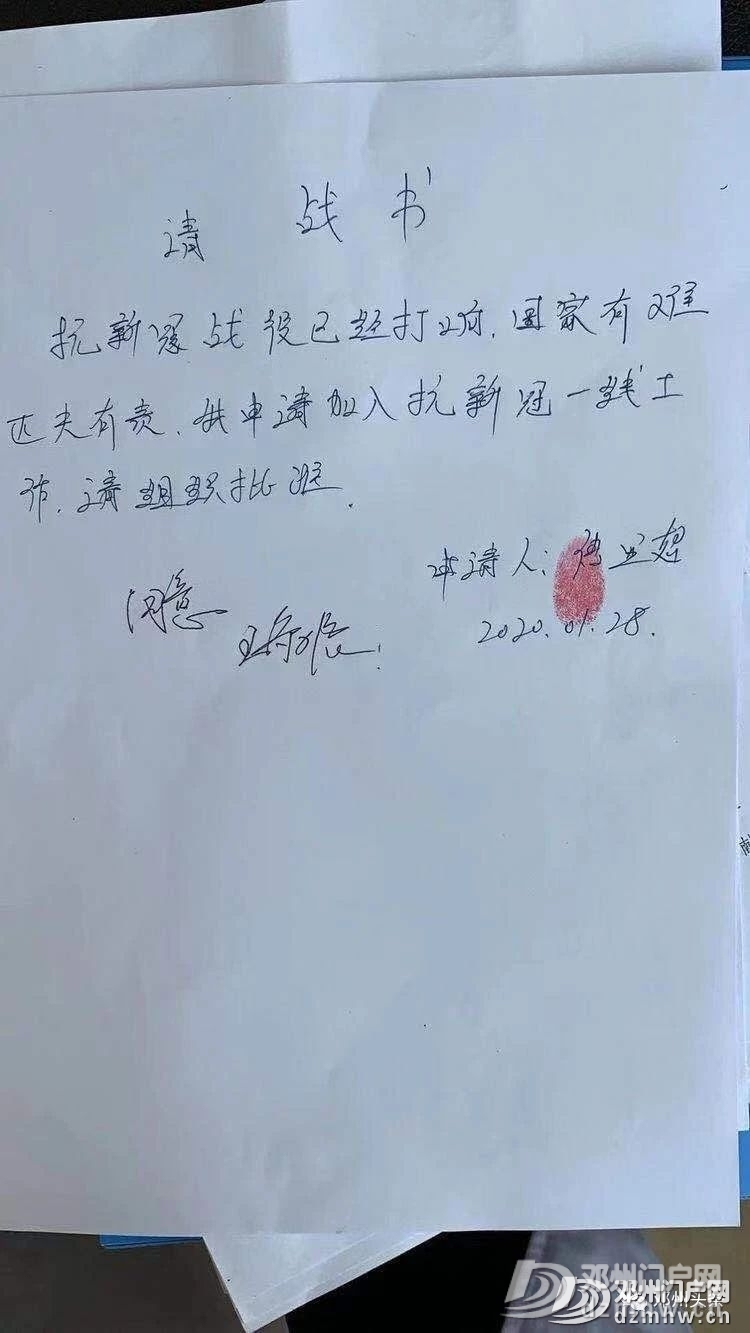 请战书
抗新冠战役已经打响,国家有难
匹夫有责、我申请加入抗新冠一线工
作,请组织批准.
申请人:
同意
2020.01.28.
邓州门户网
邓州头条
邓州门户网
dzmhw.cn